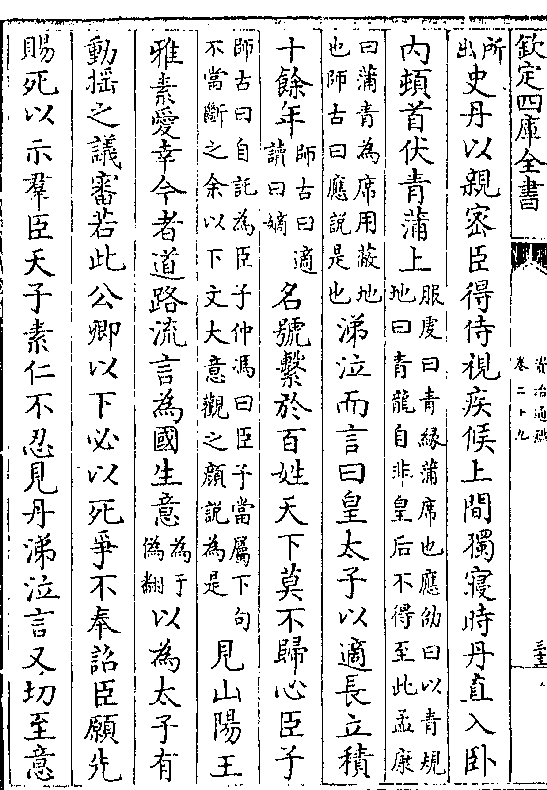 欽定四庫全書
資治通鑑
卷二十九
所出史丹以親密臣得侍視疾候上間獨寢時丹直入臥
內頓首伏青蒲上服虔曰青緣蒲席也應劭曰以青規地曰青龍自非皇后不得至此孟康
曰蒲青為席用蔽地也師古曰應說是也涕泣而言曰皇太子以適長立積
十餘年師古曰適讀曰嫡名號繫於百姓天下莫不歸心臣子
師古曰自託為臣子仲馮曰臣子當屬下句不當斷之余以下文大意觀之顏說為是見山陽王
雅素愛幸今者道路流言為國生意為于偽翻以為太子有
動搖之議審若此公卿以下必以死爭不奉詔臣願先
賜死以示羣臣天子素仁不忍見丹涕泣言又切至意